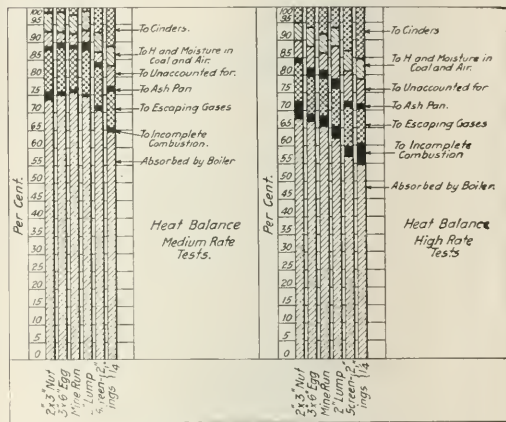 100
95
90
85
80
75
70
65
60
55
50
45
40
35
30
25
20
15
10
5
0
Per Cent.
To Cinders.
To H and Moisture in
Coal and Air.
To Unaccounted for.
To Ash Pan
To Escaping Gases
To Incomplete
Combustion.
Absorbed by Boiler
Heat Balance
Medium Rate
Tests.
2"x 3" Nut
3"x 6" Egg
Mine Run
2" Lump
Screen- 2"
ings 1 1/4"
100
95
90
85
80
75
70
65
60
55
50
45
40
35
30
25
20
15
10
5
0
Per Cent.
To Cinders
To H and Moisture in
Coal and Air.
To Unaccounted for
To Ash Pan.
To Escaping Gases
To Incomplete
Combustion
Absorbed by Boiler.
Heat Balance
High Rate
Tests
2"x 3" Nut
3"x 6" Egg
Mine Run
2" Lump
Screen- 2"
ings 1 1/4"